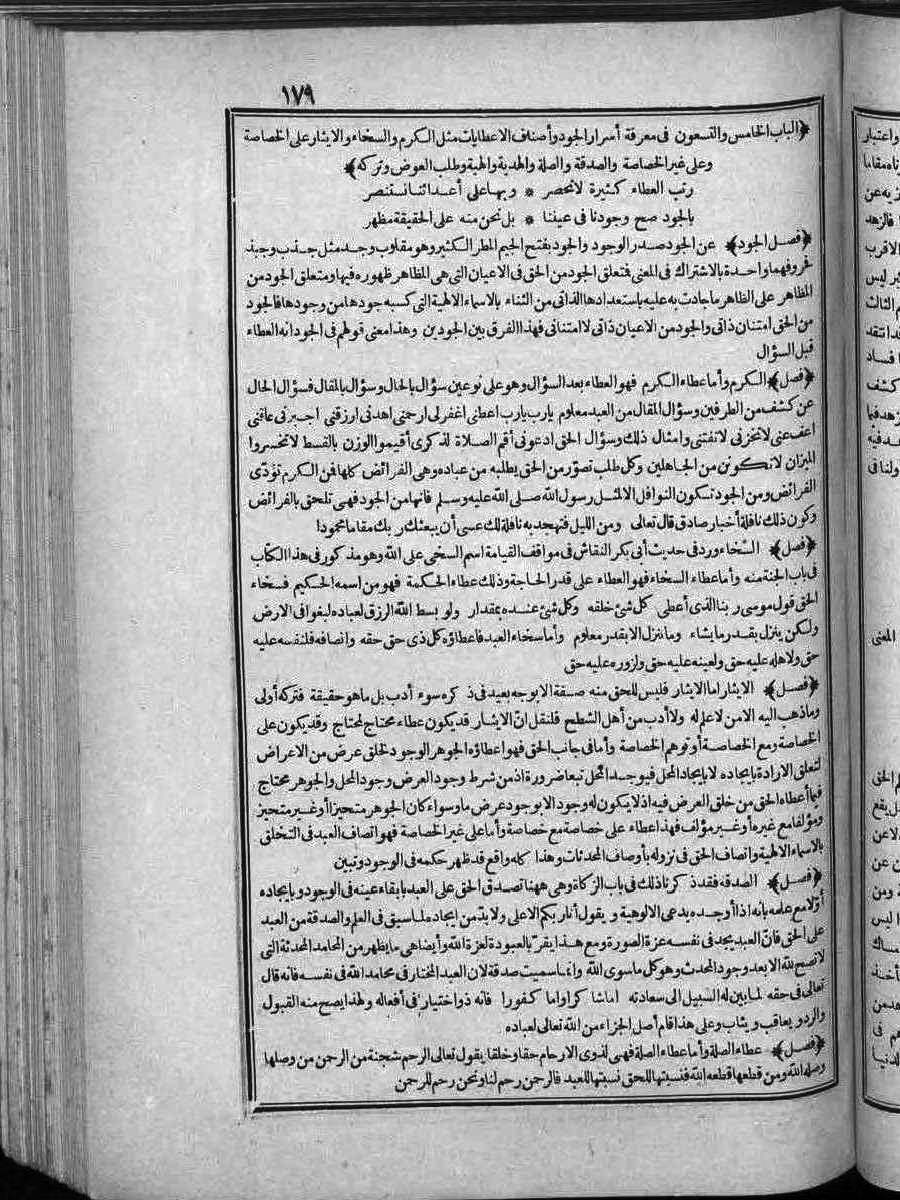 ١٧٩
﴿الباب الخامس والتسعون في معرفة أسرار الجود وأصناف الاعطايات مثل الكرم والسخاء والايثار على الخصاصة
وعلى غير الخصاصة والصدقة والصلة والهدية والهبة وطلب العوض وتركه﴾
رتب العطاء كثيرة لاتحصر * وبها على أعدائنا نستنصر
بالجود صح وجودنا في عيننا * بل نحن منه على الحقيقة مظهر
﴿فصل الجود﴾ عن الجود صدر الوجود والجود بفتح الجيم المطر الكثير وهو مقلوب وجد مثل جذب وجبذ
فحروفهما واحدة بالاشتراك في المعنى فتعلق الجود من الحق في الاعيان التي هي المظاهر ظهوره فيها ومتعلق الجود من
المظاهر على الظاهر ما جادت به عليه باستعدادها الذاتي من الثناء بالاسماء الالهية التي كسبه جودها من وجودها فالجود
من الحق امتنان ذاتي والجود من الاعيان ذاتي لا امتناني فهذا الفرق بين الجودين وهذا معنى قولهم في الجود انه العطاء
قبل السؤال
﴿فصل﴾ الكرم وأما عطاء الكرم فهو العطاء بعد السؤال وهو على نوعين سؤال بالحال وسؤال بالمقال فسؤال الحال
عن كشف من الطرفين وسؤال المقال من العبد معلوم يارب يارب اعطني اغفر لي ارحمني اهدني ارزقني اجبرني عافني
اعف عني لا تخزني لا تفتني وامثال ذلك وسؤال الحق ادعوني أقم الصلاة لذكرى أقيموا الوزن بالقسط لا تخسروا
الميزان لا تكونن من الجاهلين وكل طلب تصوّر من الحق يطلبه من عباده وهي الفرائض كلها فمن الكرم تؤدّى
الفرائض ومن الجود تكون النوافل الا لمثل رسول الله صلى الله عليه وسلم فانها من الجود فهي تلحق بالفرائض
وكون ذلك نافلة أخبار صادق قال تعالى ومن الليل فتهجد به نافلة لك عسى أن يبعثك ربك مقاما محمودا
﴿فصل﴾ السخاء ورد في حديث أبي بكر النقاش في مواقف القيامة اسم السخي على الله وهو مذكور في هذا الكتاب
في باب الجنة منه وأما عطاء السخاء فهو العطاء على قدر الحاجة وذلك عطاء الحكمة فهو من اسمه الحكيم فسخاء
الحق قول موسى ربنا الذي أعطى كل شئ خلقه وكل شئ عنده بمقدار ولو بسط الله الرزق لعباده لبغوا في الارض
ولكن ينزل بقدر ما يشاء وما ننزله الا بقدر معلوم وأما سخاء العبد فاعطاؤه كل ذي حق حقه وانصافه فلنفسه عليه
حق ولاهله عليه حق ولعينه عليه حق ولزوره عليه حق
﴿فصل﴾ الايثار اما الايثار فليس للحق منه صفة الا بوجه بعيد في ذكره سوء أدب بل ما هو حقيقة فتركه أولى
وما ذهب اليه الا من لا علم له ولا أدب من أهل الشطح فلنقل انّ الايثار قد يكون عطاء محتاج لمحتاج وقد يكون على
الخصاصة ومع الخصاصة أو توهم الخصاصة وأما في جانب الحق فهو اعطاؤه الجوهر الوجود لخلق عرض من الاعراض
لتعلق الارادة بايجاده لا بايجاد المحل فيوجد المحل تبعا ضرورة اذ من شرط وجود العرض وجود المحل والجوهر محتاج
فيما أعطاه الحق من خلق العرض فيه اذ لا يكون له وجود الا بوجود عرض ما وسواء كان الجوهر متحيزا أو غير متحيز
ومؤلفا مع غيره أو غير مؤلف فهذا عطاء على خصاصة مع خصاصة وأما على غير الخصاصة فهو اتصاف العبد في التخلق
بالاسماء الالهية واتصاف الحق في نزوله بأوصاف المحدثات وهذا كله واقع قد ظهر حكمه في الوجود وتبين
﴿فصل﴾ الصدقه فقد ذكرنا ذلك في باب الزكاة وهي ههنا تصدق الحق على العبد بابقاء عينه في الوجود وبايجاده
أوّلا مع علمه بانه اذا أوجده يدعى الالوهية ويقول أنا ربكم الاعلى ولا بدّ من ايجاده لما سبق في العلم والصدقة من العبد
على الحق فانّ العبد يجد في نفسه عزة الصورة ومع هذا يقرّ بالعبودة لعزة الله وأيضا هي ما يظهر من المحامد المحدثة التي
لا تصح لله الا بعد وجود المحدث وهو كل ما سوى الله وانما سميت صدقة لان العبد المختار في محامد الله في نفسه فانه قال
تعالى في حقه لما بين له السبيل الى سعادته اما شاكرا واما كفورا فانه ذو اختيار في أفعاله ولهذا يصح منه القبول
والرد ويعاقب ويثاب وعلى هذا قام أصل الجزاء من الله تعالى لعباده
﴿فصل﴾ عطاء الصلة وأما عطاء الصلة فهي لذوى الارحام حقا وخلقا يقول تعالى الرحم شجنة من الرحمن من وصلها
وصله الله ومن قطعها قطعه الله فنسبتها للحق نسبتها للعبد فالرحمن رحم لنا ونحن رحم للرحمن